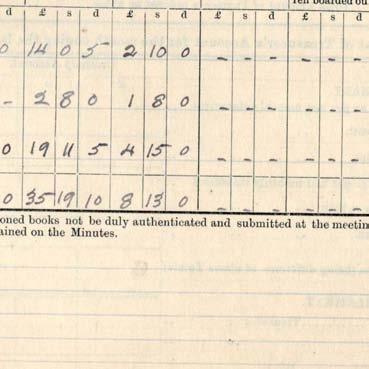 Ten boarded ou
d £ s d £ s d £ s d £ s d
0 14 0 5 2 10 0 - - - - - -
- 2 8 0 1 8 0 - - - - - -
0 19 11 5 4 15 0 - - - - - -
0 35 19 10 8 13 0 - - - - - -
oned books not be duly authenticated and submitted at the meetin
ained on the Minutes.